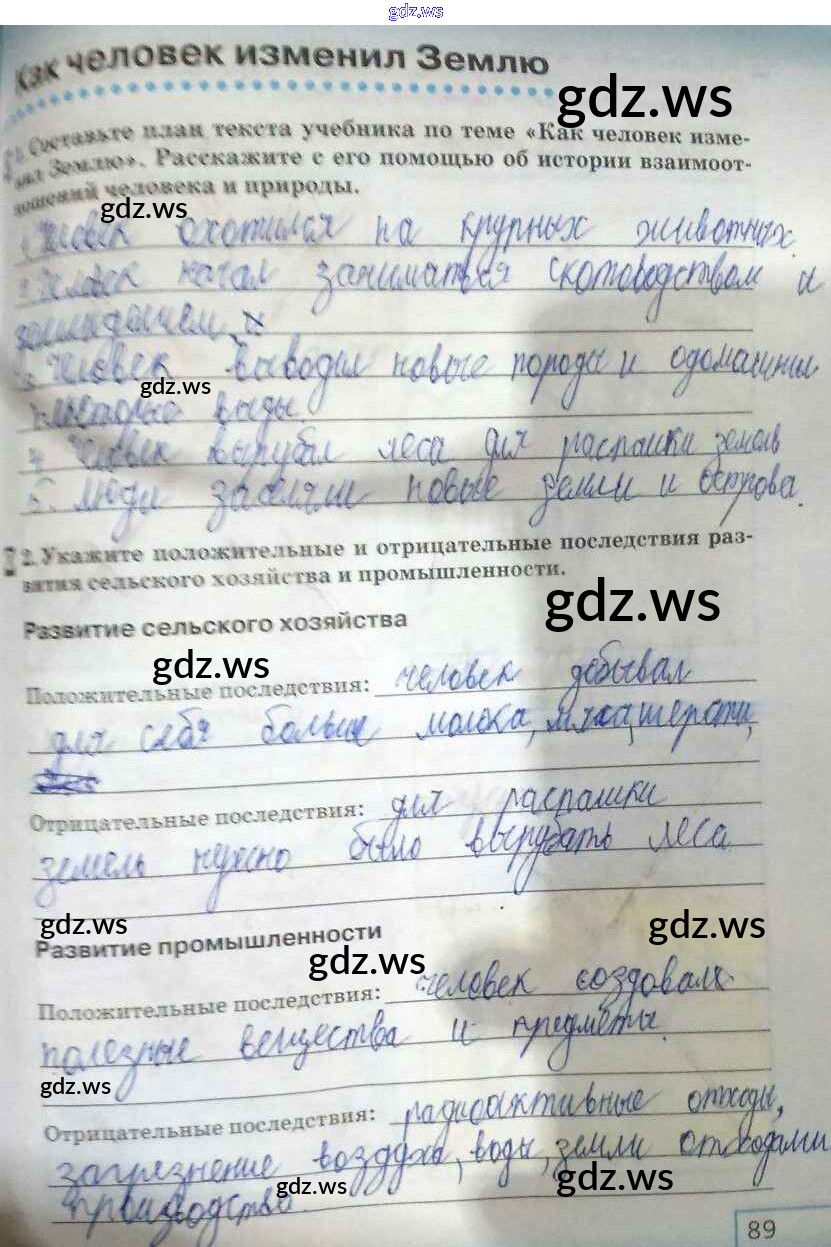 gdz.ws
Как человек изменил Землю
gdz.ws
1. Составьте план текста учебника по теме «Как человек изме-
нил Землю». Расскажите с его помощью об истории взаимоот-
ношений человека и природы.
gdz.ws
1. Человек охотился на крупных животных.
2. Человек начал заниматься скотоводством и
земледелием
3. Человек выводил новые породы и одомашнил
gdz.ws
некоторые виды.
4. Человек вырубал леса для распашки земель
5. Люди заселяли новые земли и острова.
2. Укажите положительные и отрицательные последствия раз-
вития сельского хозяйства и промышленности.
gdz.ws
Развитие сельского хозяйства
gdz.ws
Положительные последствия: человек добывал
для себя больше молока, мяса, шерсти,
Отрицательные последствия: для распашки
земель нужно было вырубать леса.
gdz.ws
gdz.ws
Развитие промышленности
gdz.ws
Положительные последствия: человек создовал
полезные вещества и предметы.
gdz.ws
Отрицательные последствия: радиоактивные отходы,
загрезнение воздуха, воды, земли отходами
gdz.ws
gdz.ws
производства.
89